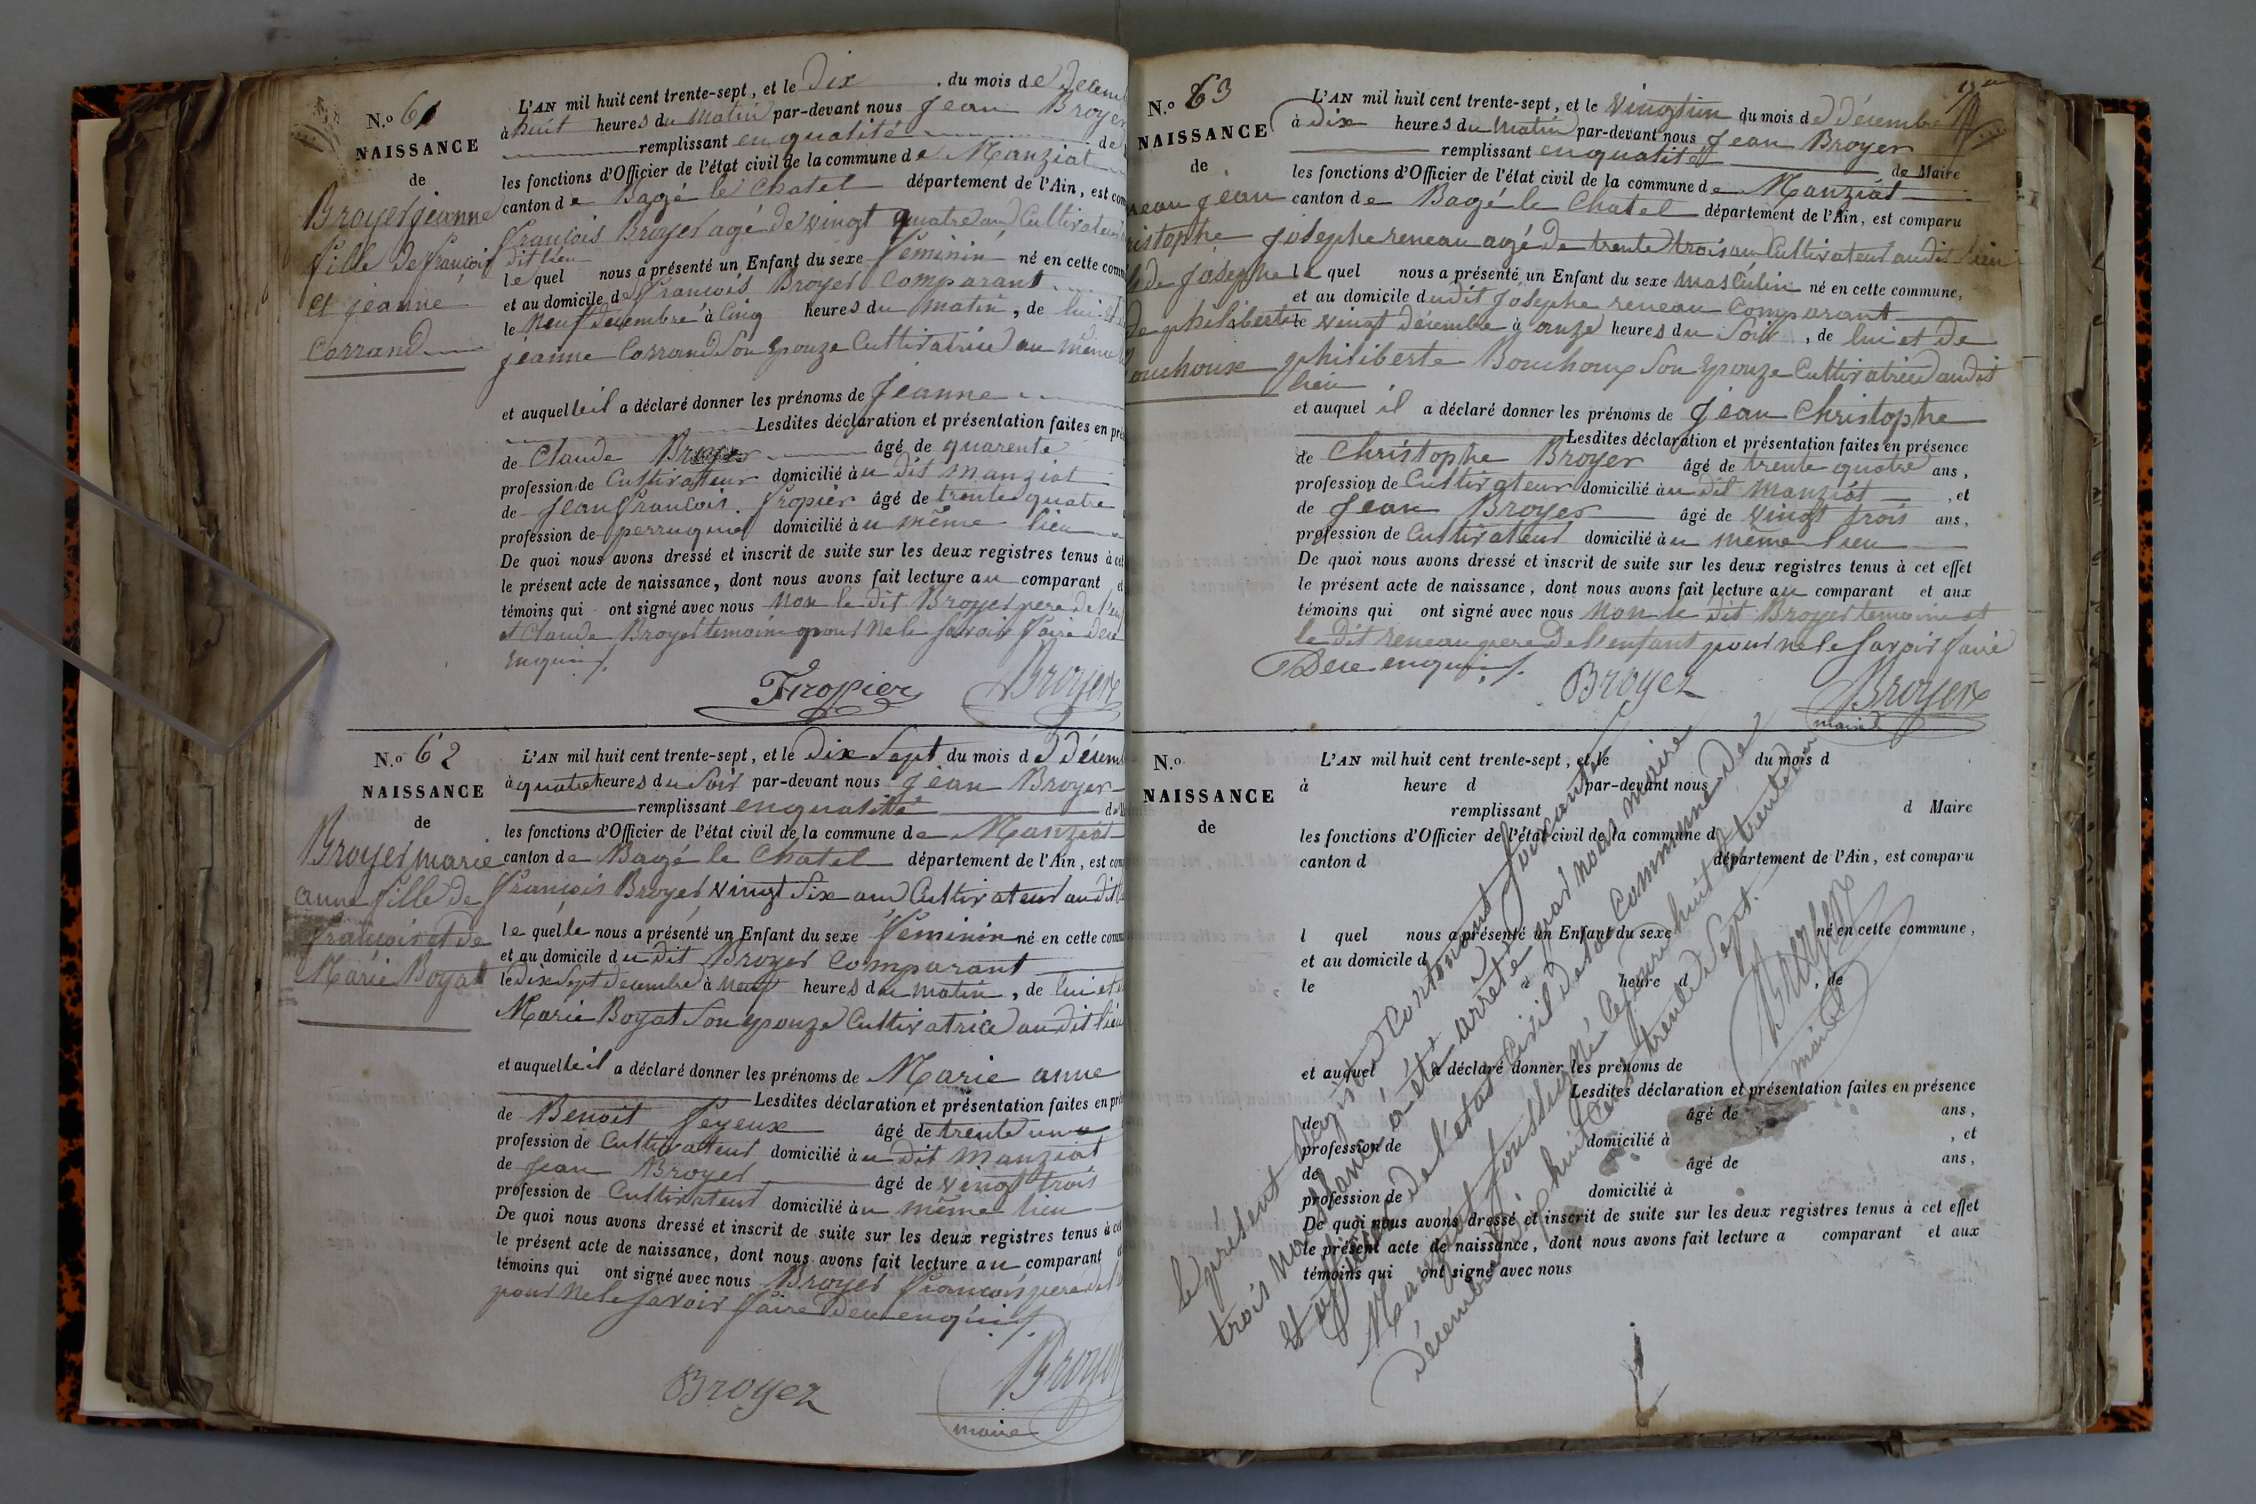 N.o 61
NAISSANCE
de
Broyer jeanne
fille de françois
et jeanne
Corrand
L'AN mil huit cent trente-sept, et le Dix du mois de Décemb
à huit heures du Matin par-devant nous Jean Broyer
remplissant en qualité de
les fonctions d'Officier de l'état civil de la commune de Manziat
canton de Bagé le Chatel département de l'Ain, est com
françois Broyer agé de vingt quatre ans Cultivateur
dit lieu
le quel nous a présenté un Enfant du sexe féminin né en cette comm
et au domicile de françois Broyer Comparant
le Neuf décembre à Cinq heures du matin, de lui et
jeanne Corrand Son epouze Cultivatrice au même
et auquelle il a déclaré donner les prénoms de Jeanne
Lesdites déclaration et présentation faites en pré
de Claude Broyer âgé de quarente
profession de Cultivateur domicilié au dit manziat
de Jean françois Fropier âgé de trente quatre
profession de perruquier domicilié au même lieu
De quoi nous avons dressé et inscrit de suite sur les deux registres tenus à cet
le présent acte de naissance, dont nous avons fait lecture au comparant et
témoins qui ont signé avec nous Non le dit Broyer pere de l'enf
et Claude Broyer temoin pour ne le savoir faire de ce
enquis
Fropier Broyer
N.o 62
NAISSANCE
de
Broyer marie
anne fille de
françois et de
Marie Boyat
L'AN mil huit cent trente-sept, et le Dix Sept du mois de Décem
à quatre heures du Soir par-devant nous Jean Broyer
remplissant en qualité de
les fonctions d'Officier de l'état civil de la commune de Manziat
canton de Bagé le Chatel département de l'Ain, est com
françois Broyer vingt Six ans Cultivateur au dit
le quelle nous a présenté un Enfant du sexe féminin né en cette comm
et au domicile du dit Broyer Comparant
le Dix Sept Decembre à Neuf heures du matin, de lui et
Marie Boyat Son epouze Cultivatrice au dit lieu
et auquelle il a déclaré donner les prénoms de Marie anne
Lesdites déclaration et présentation faites en pré
de Benoit feyeux âgé de trente un
profession de Cultivateur domicilié au dit manziat
de Jean Broyer âgé de vingt trois
profession de Cultivateur domicilié au même lieu
De quoi nous avons dressé et inscrit de suite sur les deux registres tenus à cet
le présent acte de naissance, dont nous avons fait lecture au comparant
témoins qui ont signé avec nous Broyer françois pere de
pour ne le savoir faire de ce enquis
Broyer Broyer
maire
N.o 63
NAISSANCE
de
neau jean
ristophe
de josephe
de philiberte
ouchoux
L'AN mil huit cent trente-sept, et le vingt un du mois de décembre
à Dix heures du Matin par-devant nous Jean Broyer
remplissant en qualité de Maire
les fonctions d'Officier de l'état civil de la commune de Manziat
canton de Bagé le Chatel département de l'Ain, est comparu
josephe reneau agé de trente trois ans Cultivateur au dit lieu
le quel nous a présenté un Enfant du sexe masculin né en cette commune,
et au domicile du dit josephe reneau Comparant
le vingt décembre à onze heures du Soir, de lui et de
philiberte Bouchoux Son epouze Cultivatrice au dit
lieu
et auquel il a déclaré donner les prénoms de Jean Christophe
Lesdites déclaration et présentation faites en présence
de Christophe Broyer âgé de trente quatre ans,
profession de Cultivateur domicilié au dit manziat, et
de Jean Broyer âgé de vingt trois ans,
profession de Cultivateur domicilié au même lieu
De quoi nous avons dressé et inscrit de suite sur les deux registres tenus à cet effet
le présent acte de naissance, dont nous avons fait lecture au comparant et aux
témoins qui ont signé avec nous Non le dit Broyer temoin et
le dit reneau pere de l'enfant pour ne le savoir faire
De ce enquis
Broyer Broyer
maire
N.o
NAISSANCE
de
L'AN mil huit cent trente-sept, et le du mois d
à heure d par-devant nous
remplissant d Maire
les fonctions d'Officier de l'état civil de la commune d
canton d département de l'Ain, est comparu
l quel nous a présenté un Enfant du sexe né en cette commune,
et au domicile d
le à heure d, de
et auquel a déclaré donner les prénoms de
Lesdites déclaration et présentation faites en présence
de âgé de ans,
profession de domicilié à, et
de âgé de ans,
profession de domicilié à
De quoi nous avons dressé et inscrit de suite sur les deux registres tenus à cet effet
le présent acte de naissance, dont nous avons fait lecture a comparant et aux
témoins qui ont signé avec nous
le présent registre Contenant Soixante
trois naissances à été arrêté par nous maire
et officier de l'état Civil de la Commune de
Manziat soussigné Ce jour huit trente un
décembre mil huit Cent trente Sept.
Broyer
maire